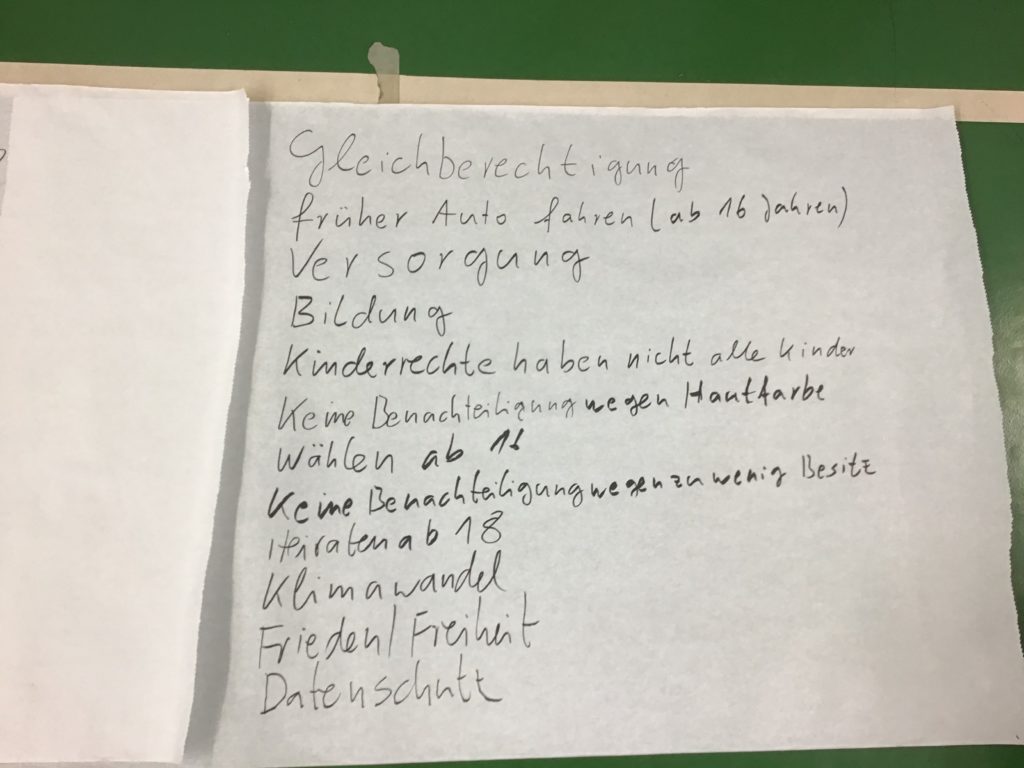 Gleichberechtigung
früher Auto fahren (ab 16 Jahren)
Versorgung
Bildung
Kinderrechte haben nicht alle Kinder
Keine Benachteiligung wegen Hautfarbe
Wählen ab
Keine Benachteiligung wegen zu wenig Besitz
Heiraten ab 18
Klimawandel
Frieden/Freiheit
Datenschutz